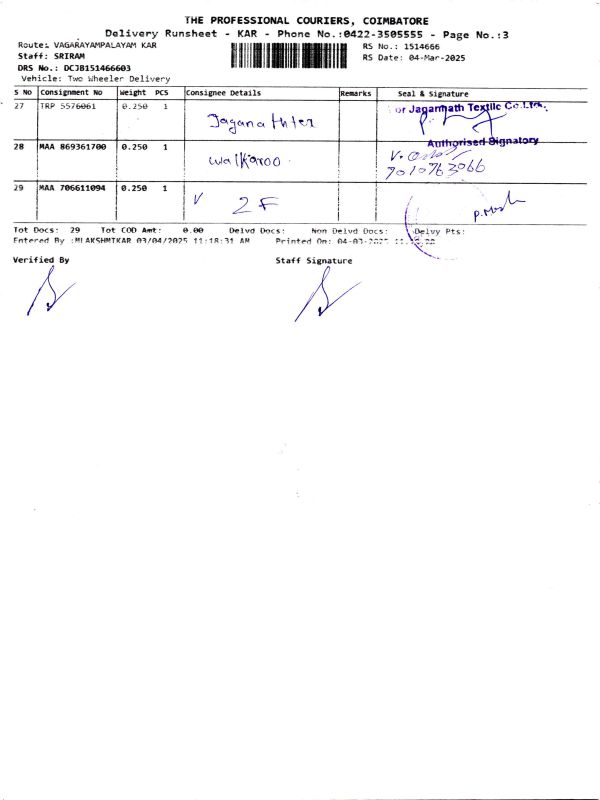 THE PROFESSIONAL COURIERS, COIMBATORE
Delivery Runsheet - KAR - Phone No.:0422-3505555 - Page No.:3
Route: VAGARAYAMPALAYAM KAR
RS No.: 1514666
Staff: SRIRAM
RS Date: 04-Mar-2025
DRS No.: DCJB151466603
Vehicle: Two Wheeler Delivery
S No Consignment No Weight PCS Consignee Details Remarks Seal & Signature
27 TRP 5576061 0.250 1 Jaganathter For Jagannath Textile Co.Ltd.,
Authorised Signatory
28 MAA 869361700 0.250 1 walkaroo
7010763066
29 MAA 706611094 0.250 1 2F
Tot Docs: 29 Tot COD Amt: 0.00 Delvd Docs: Non Delvd Docs: Delvy Pts:
Entered By :MLAKSHMIKAR 03/04/2025 11:18:31 AM Printed On: 04-03-2025
Verified By Staff Signature